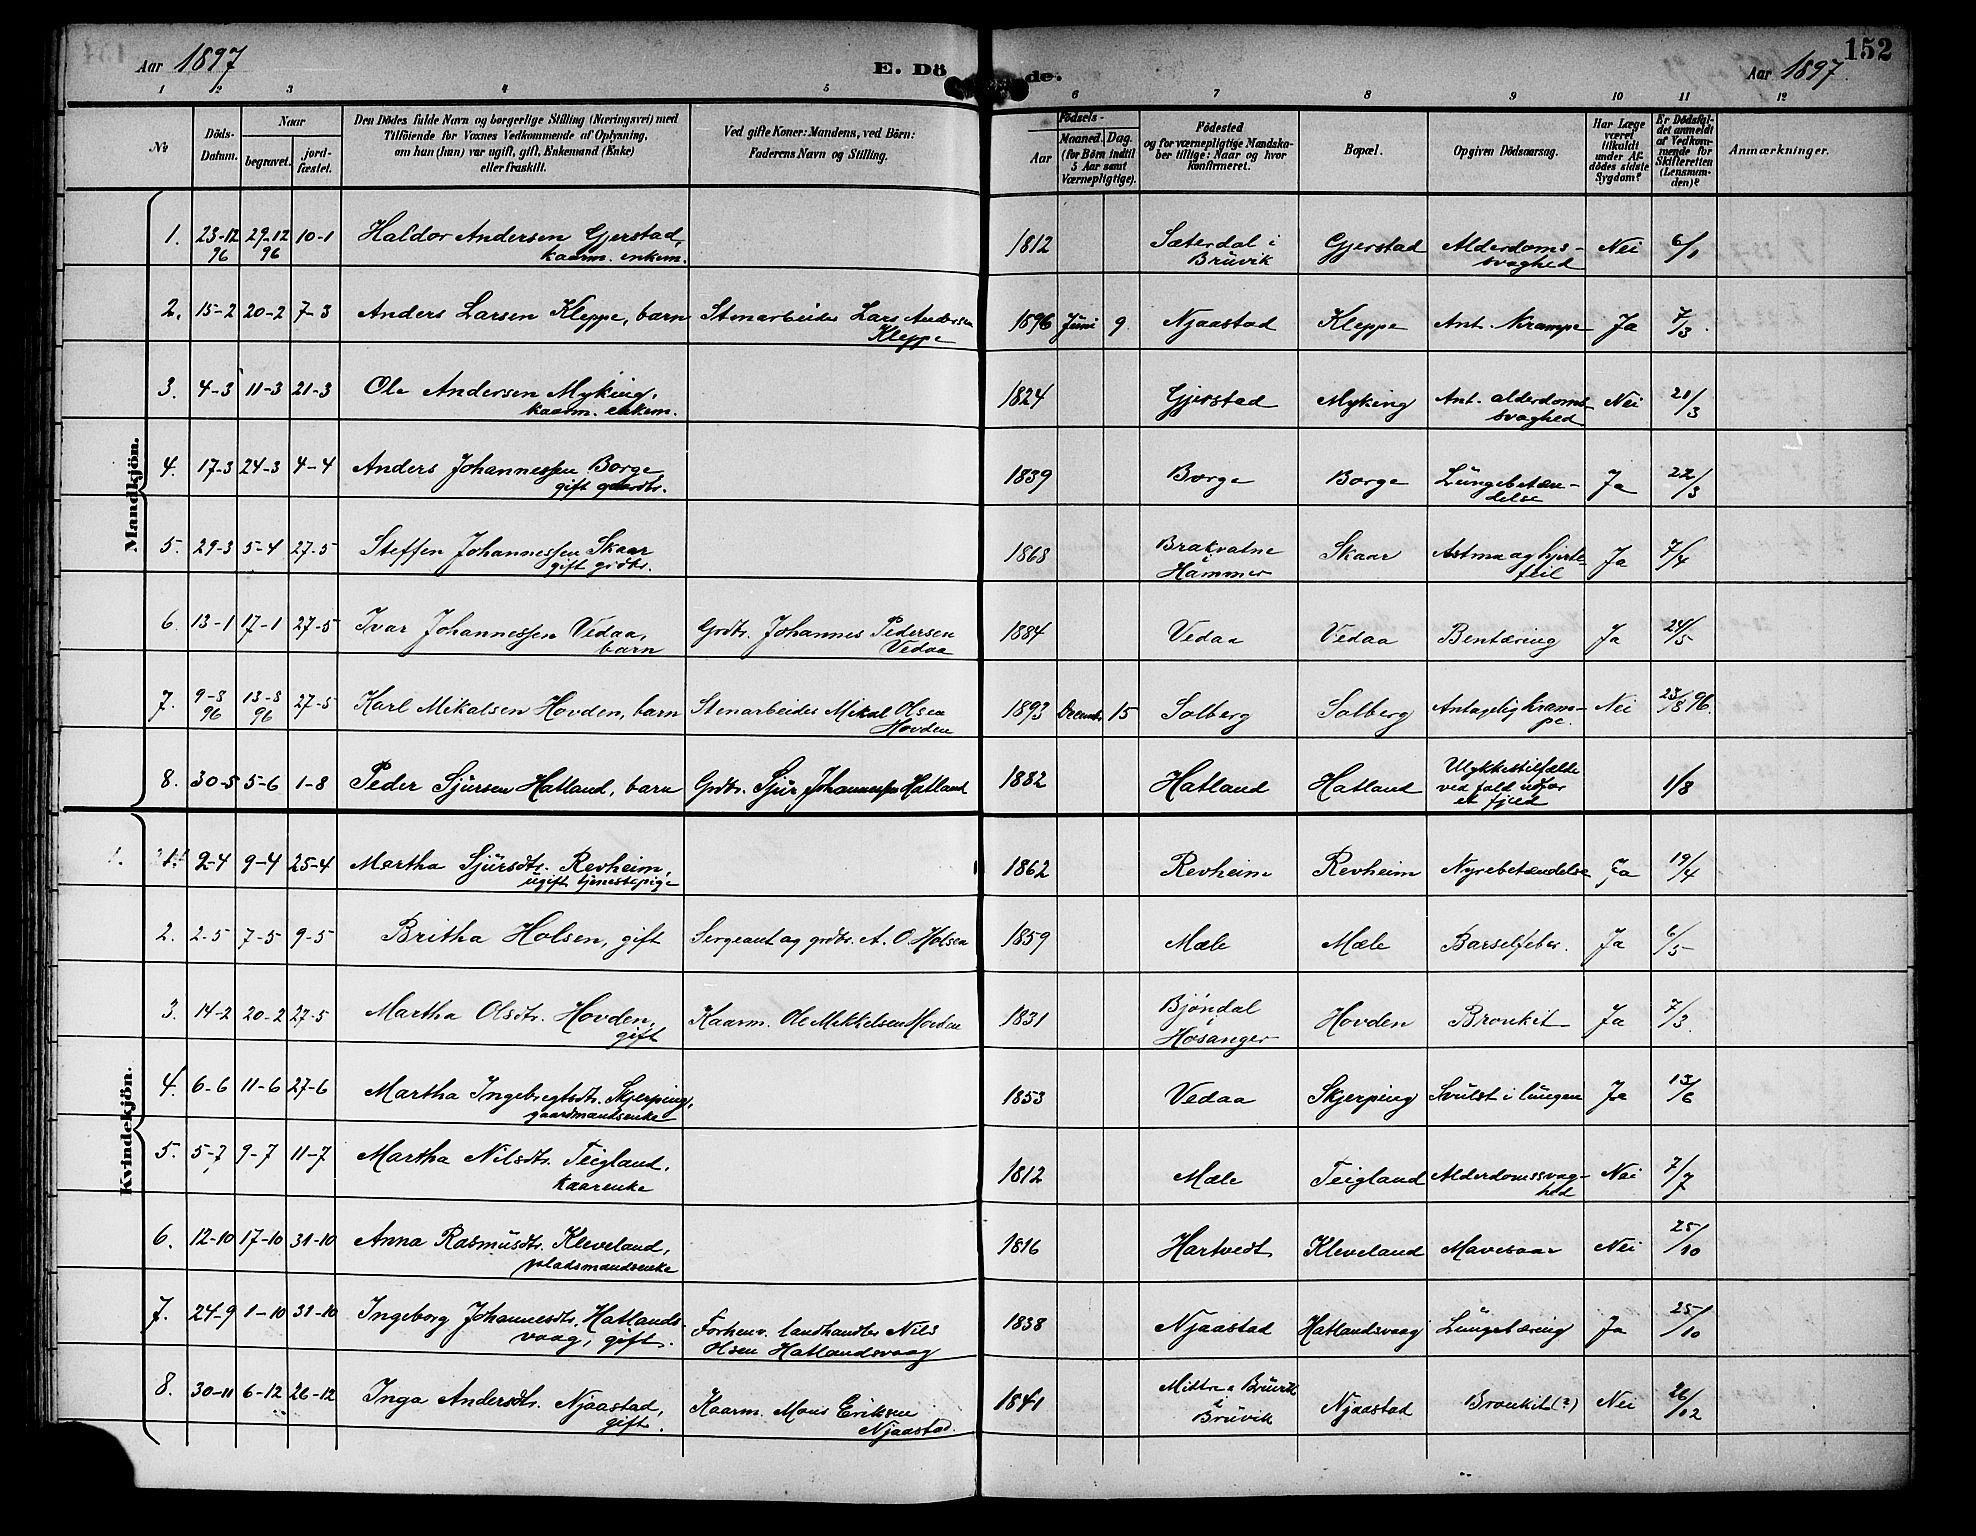 Aar 1897
E. Döde.
Aar 1897.
152
1 2 3 4 5 6 7 8 9 10 11 12
No
Döds-Datum.
Naar
begravet.
jord-fæstet.
Den Dödes fulde Navn og borgerlige Stilling (Næringsvei) med
Tilföiende for Voxnes Vedkommende af Oplysning,
om han (hun) var ugift, gift, Enkemand (Enke)
eller fraskilt.
Ved gifte Koner: Mandens, ved Börn:
Faderens Navn og Stilling.
Födsels-
Aar
Maaned. Dag.
(for Börn indtil
5 Aar samt
Værnepligtige).
Födested
og for værnepligtige Mandska-
ber tillige: Naar og hvor
konfirmeret.
Bopæl.
Opgiven Dödsaarsag.
Har Læge
været
tilkaldt
under Af-
dödes sidste
Sygdom?
Er Dödsfal-
det anmeldt
af Vedkom-
mende for
Skifteretten
(Lensman-
den)?
Anmærkninger.
Mandkjön.
1. 23-12 96 29-12 96 10-1 Haldor Andersen Gjerstad, kaarm. enkem. 1812 Sæterdal i Brüvik Gjerstad Alderdoms-svaghed Nei 6/1
2. 15-2 20-2 7-3 Anders Larsen Kleppe, barn Stenarbeider Lars Andersen Kleppe 1896 Juni 9 Njaastad Kleppe Ant. Krampe Ja 7/3.
3. 4-3 11-3 21-3 Ole Andersen Myking, kaarm. enkem. 1824 Gjerstad Myking Ant. alderdoms-svaghed Nei 21/3
4. 17-3 24-3 4-4 Anders Johannessen Borge gift gaardbr. 1839 Borge Borge Lüngebetæn-delse Ja 22/3
5. 29-3 5-4 27-5 Steffen Johannessen Skaar gift grdbr. 1868 Brakvatne Hammer Skaar Astma og hjerte-feil Ja 7/4
6. 13-1 17-1 27-5 Ivar Johannessen Vedaa, barn Grdbr. Johannes Pedersen Vedaa 1884 Vedaa Vedaa Bentæring Ja 24/5
7. 9-8 96 13-8 96 27-5 Karl Mikalsen Hovden, barn Stenarbeider Mikal Olsen Hovden 1893 Decemb. 15 Solberg Solberg Antagelig kram-pe. Nei 23/8 96.
8. 30-5 5-6 1-8 Peder Sjürsen Hatland, barn Grdbr. Sjür Johannessen Hatland 1882 Hatland Hatland Ulykkestilfælde ved fald udfor et fjeld 1/8
Kvindekjön.
1. 2-4 9-4 25-4 Martha Sjürsdtr. Revheim, ügift tjenestepige 1862 Revheim Revheim Nyrebetændelse Ja 19/4
2. 2-5 7-5 9-5 Britha Holsen, gift Sergeant og grdbr. A. O. Holsen 1859 Mæle Mæle Barselfeber. Ja 6/5
3. 14-2 20-2 27-5 Martha Olsdtr. Hovden, gift Kaarm. Ole Mikkelsen Hovden 1831 Bjöndal Hosanger Hovden Bronkit Ja 7/3.
4. 6-6 11-6 27-6 Martha Ingebregtsdtr. Skjerping, gaardmandsenke 1853 Vedaa Skjerping Svülst i lüngene Ja 13/6
5. 5-7 9-7 11-7 Martha Nilsdtr. Teigland, kaarenke 1812 Mæle Teigland Alderdomssvag-hed Nei 7/7
6. 12-10 17-10 31-10 Anna Rasmüsdtr. Kleveland, pladsmandsenke 1816 Hartvedt Kleveland Mavesaar Nei 25/10
7. 24-9 1-10 31-10 Ingeborg Johannesdtr. Hatlands-vaag, gift. Forhenv. landhandler Nils Olsen Hatlandsvaag 1838 Njaastad Hatlandsvaag Lüngetæring Ja 25/10
8. 30-11 6-12 26-12 Inga Andersdtr. Njaastad, gift. Kaarm. Mons Eriksen Njaastad. 1841 Brüvik i Brüvik Njaastad Bronkit (?) Nei 26/12